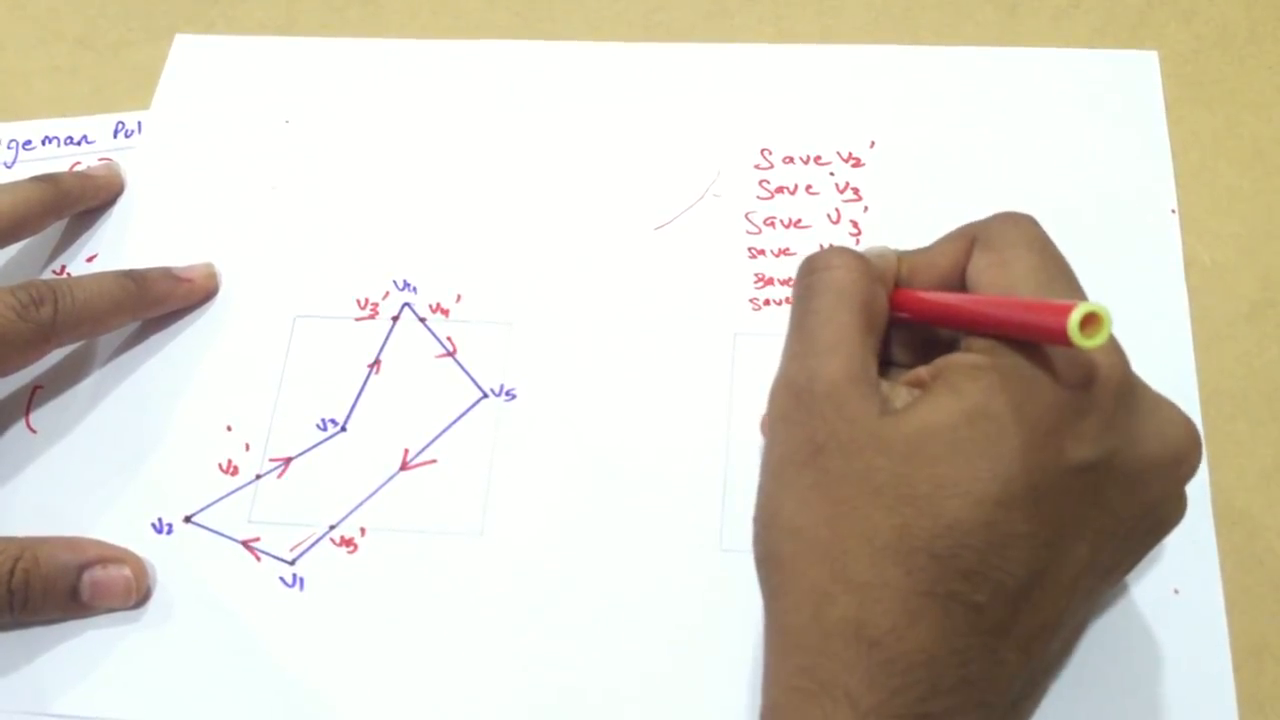 geman Pol
Save v2'
Save v3
Save v3'
save
Save
save
v4
v3' v4'
v5
v3
v2'
v2
v5'
v1